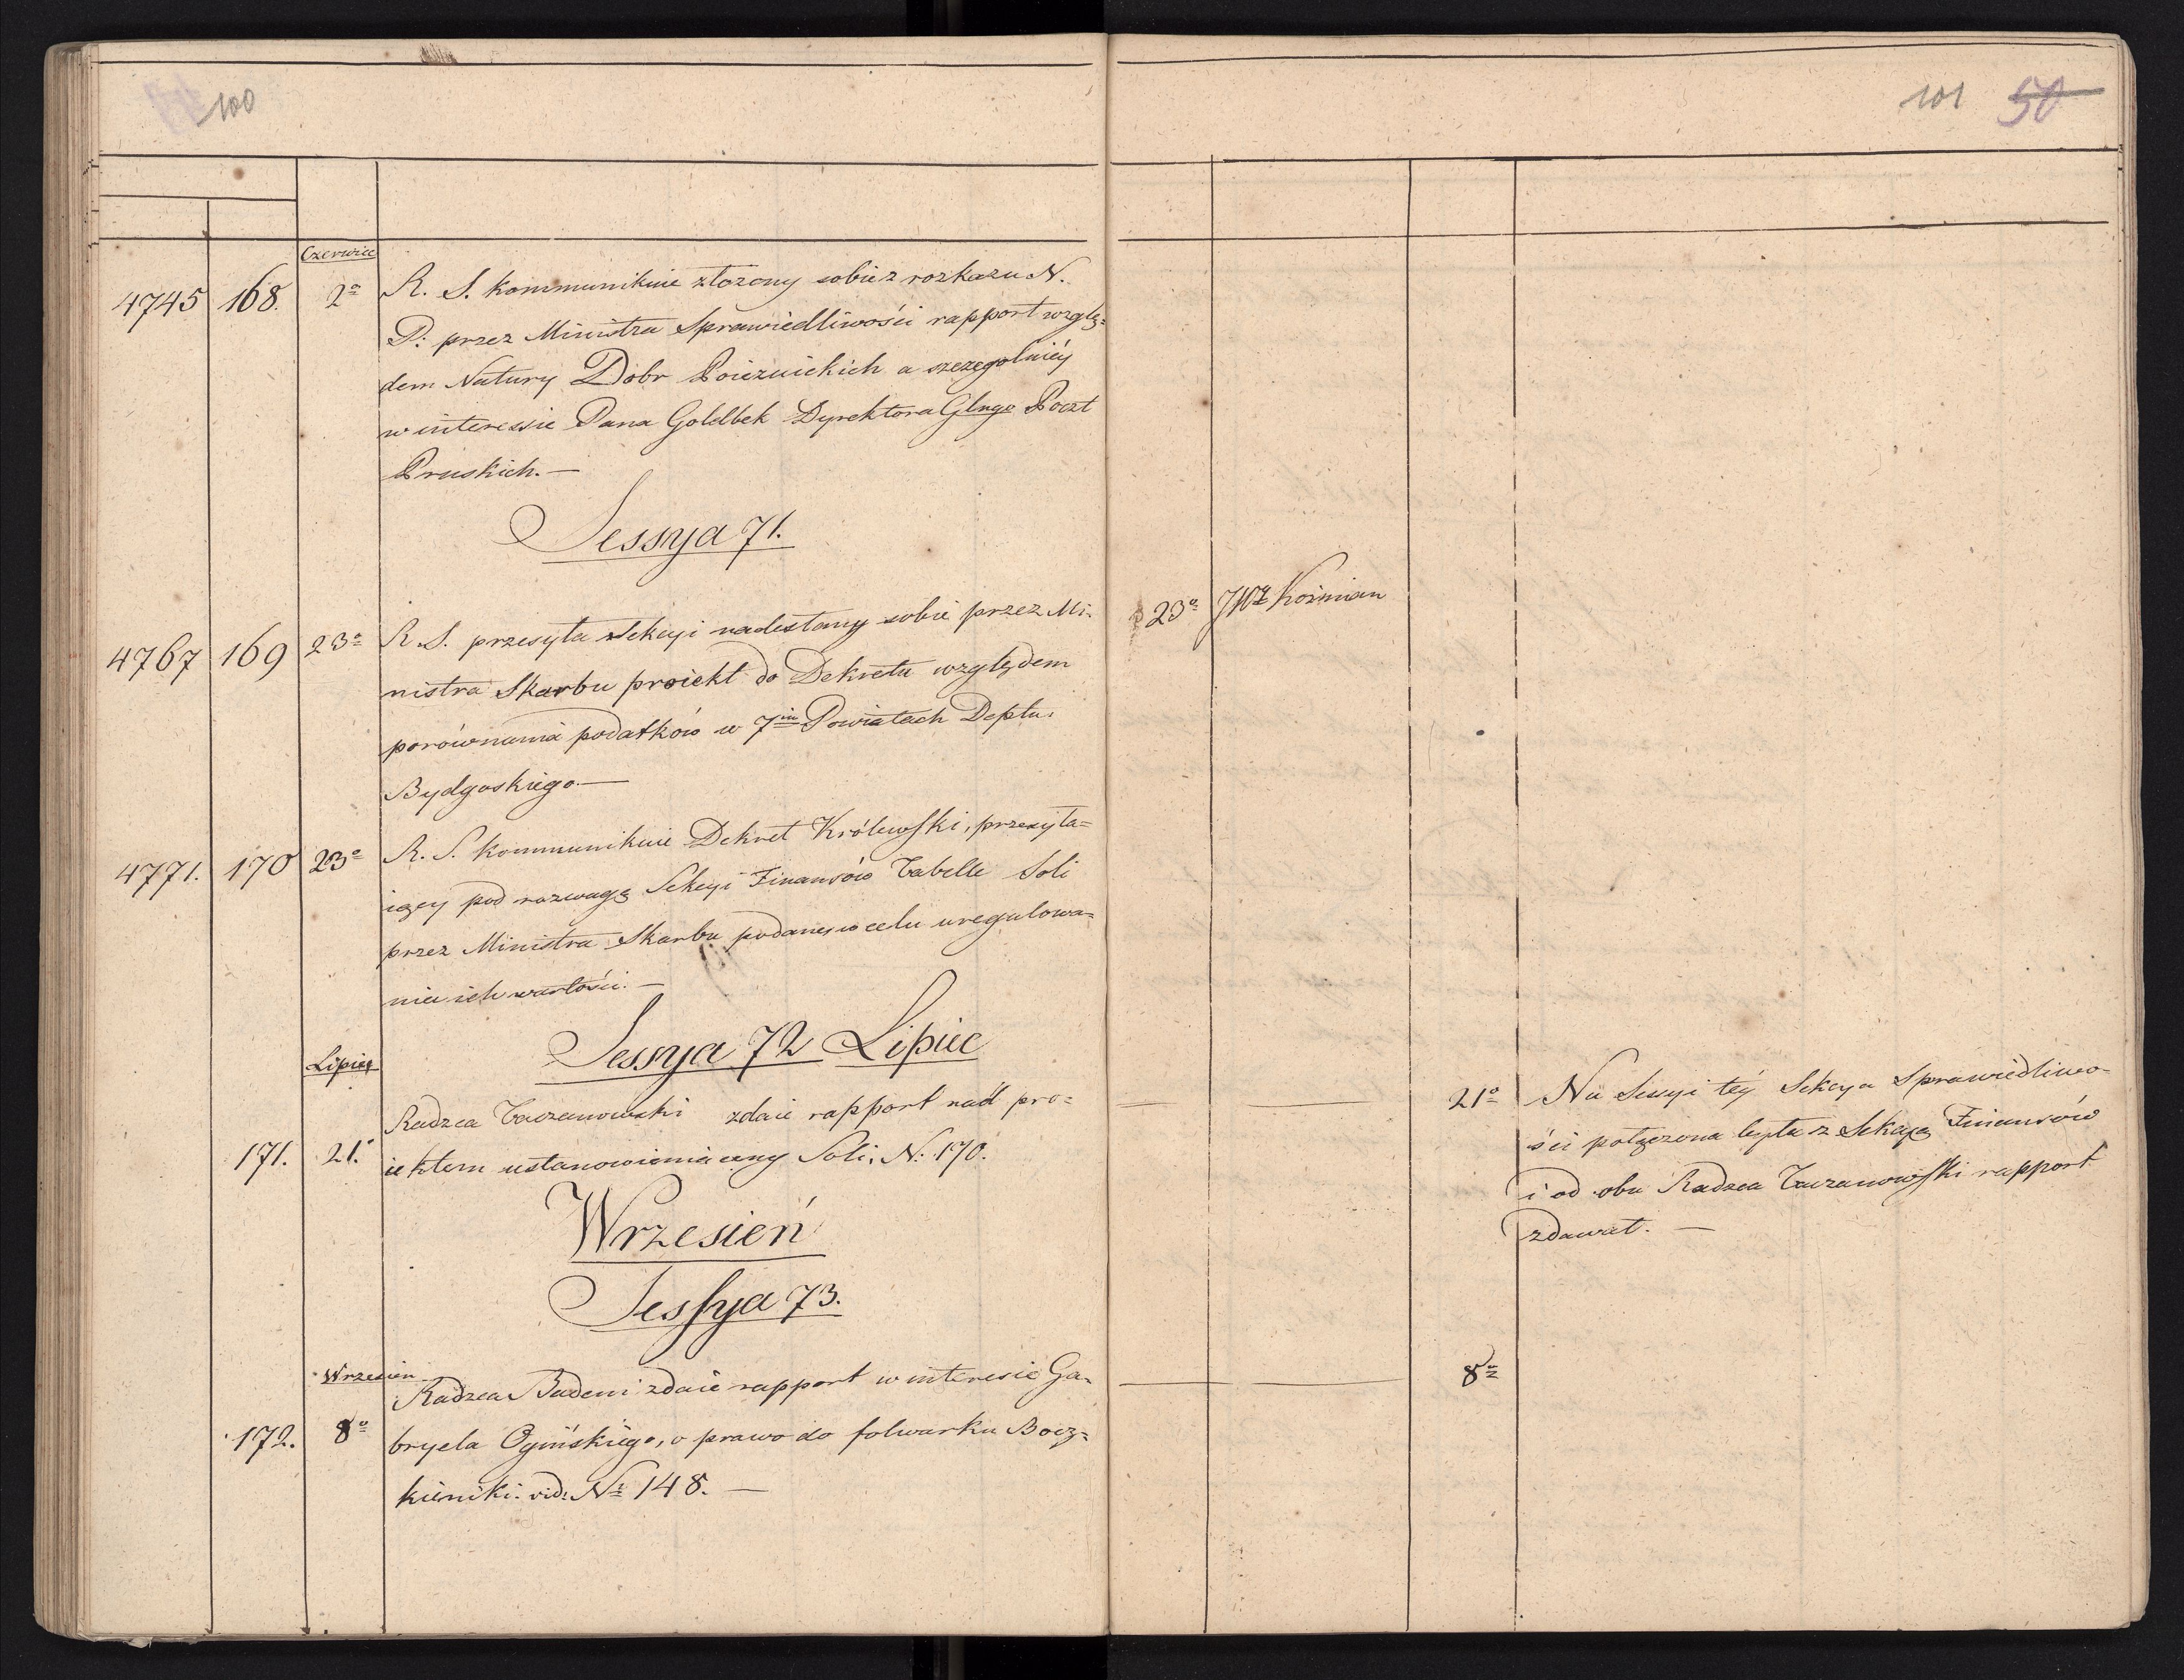 100
Czerwiec
4745 168. 2ª R. S. kommunikuie złożony sobie z rozkazu N.
P: przez Ministra Sprawiedliwości rapport wzglę=
dem Natury Dobr Poieznickich a szczegolniéy
w interessie Pana Goldbek Dyrektora Glngo Poczt
Pruskich.—
Sessya 71.
4767 169 23ª R. S. przesyła Sekcyi nadesłany sobie przez Mi-
nistra Skarbu proiekt do Dekretu względem
porównania podatków w 7iu Powiatach Deptu.
Bydgoskiego.—
4771. 170 23ª R. S. kommunikuie Dekret Królewski, przesyła=
iący pod rozwagę Sekcyi Finansów Tabelle Soli
przez Ministra Skarbu podane, w celu uregulowa=
nia ich wartości.—
Sessya 72 Lipiec
Lipiec
Radzca Taczanowski zdaie rapport nad pro=
171. 21.ª iektem ustanowienia ceny Soli. N: 170.
Wrzesień
Sessya 73.
Wrzesień
Radzca Badeni zdaie rapport w interesie Ga-
172. 8ª bryela Ogińskiego, o prawo do folwarku Bocz=
kieniki. vid: No 148. —
101 50
23ª JWy Koźmian
21ª Na Sessyi téy Sekcya Sprawiedliwo-
ści połączona była z Sekcyą Finansów
i od obu Radzca Taczanowski rapport
zdawał. —
8ª